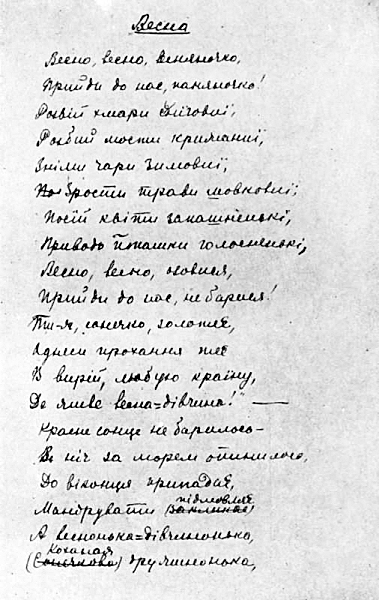 Весна
Весно, весно, весняночко,
Прийди до нас, паняночко!
Розвій хмари снігові,
Розбий мости крижані,
Зніми чари зимові,
брости трави шовкові,
Посій квіти запашненькі,
Приводь пташки голосненькі,
Весно, весно, озовися,
Прийди до нас, не барися!
Ти-ж, сонечко, золоте,
Однеси прохання те
В вирій, любую країну,
Де живе весна=дівчина!" —
Красне сонце не барилося–
В ніч за морем опинилося,
До віконця припадає,
підмовляє
Мандрувати (закликає)
А веснонька=дівчинонька,
Коханая
(Сонечкова) дружинонька,